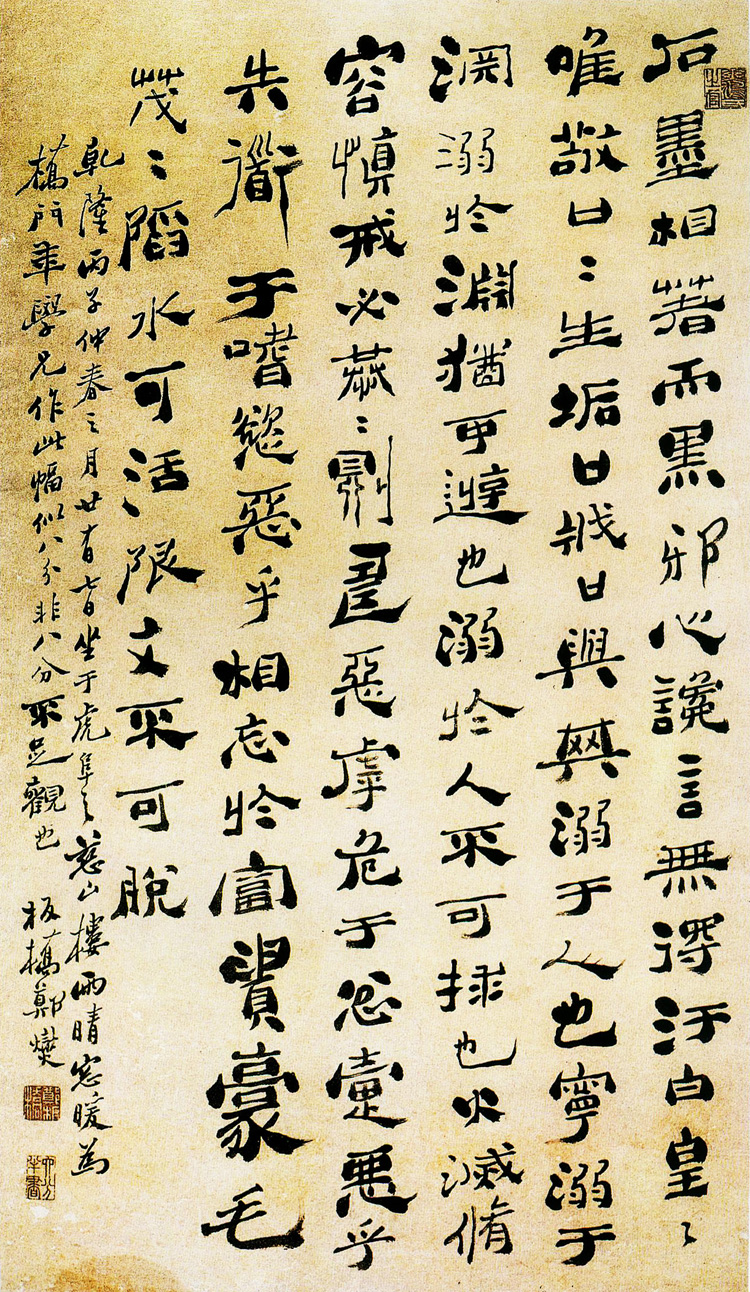 石墨相著而黑邪心讒言無得汙白皇〻
唯敬口〻生垢口戕口與其溺于人也寧溺于
淵溺於淵猶可遊也溺於人不可救也火滅脩
容慎戒必恭〻則壽惡虖危于忿疐惡乎
失衜于嗜慾惡乎相忘於富貴豪毛
茂〻陷水可活限文不可脫
乾隆丙子仲春之月廿有七日坐于虎阜之慈山樓雨晴窓暖為
橋門年學兄作此幅似八分非八分不足觀也 板橋鄭燮